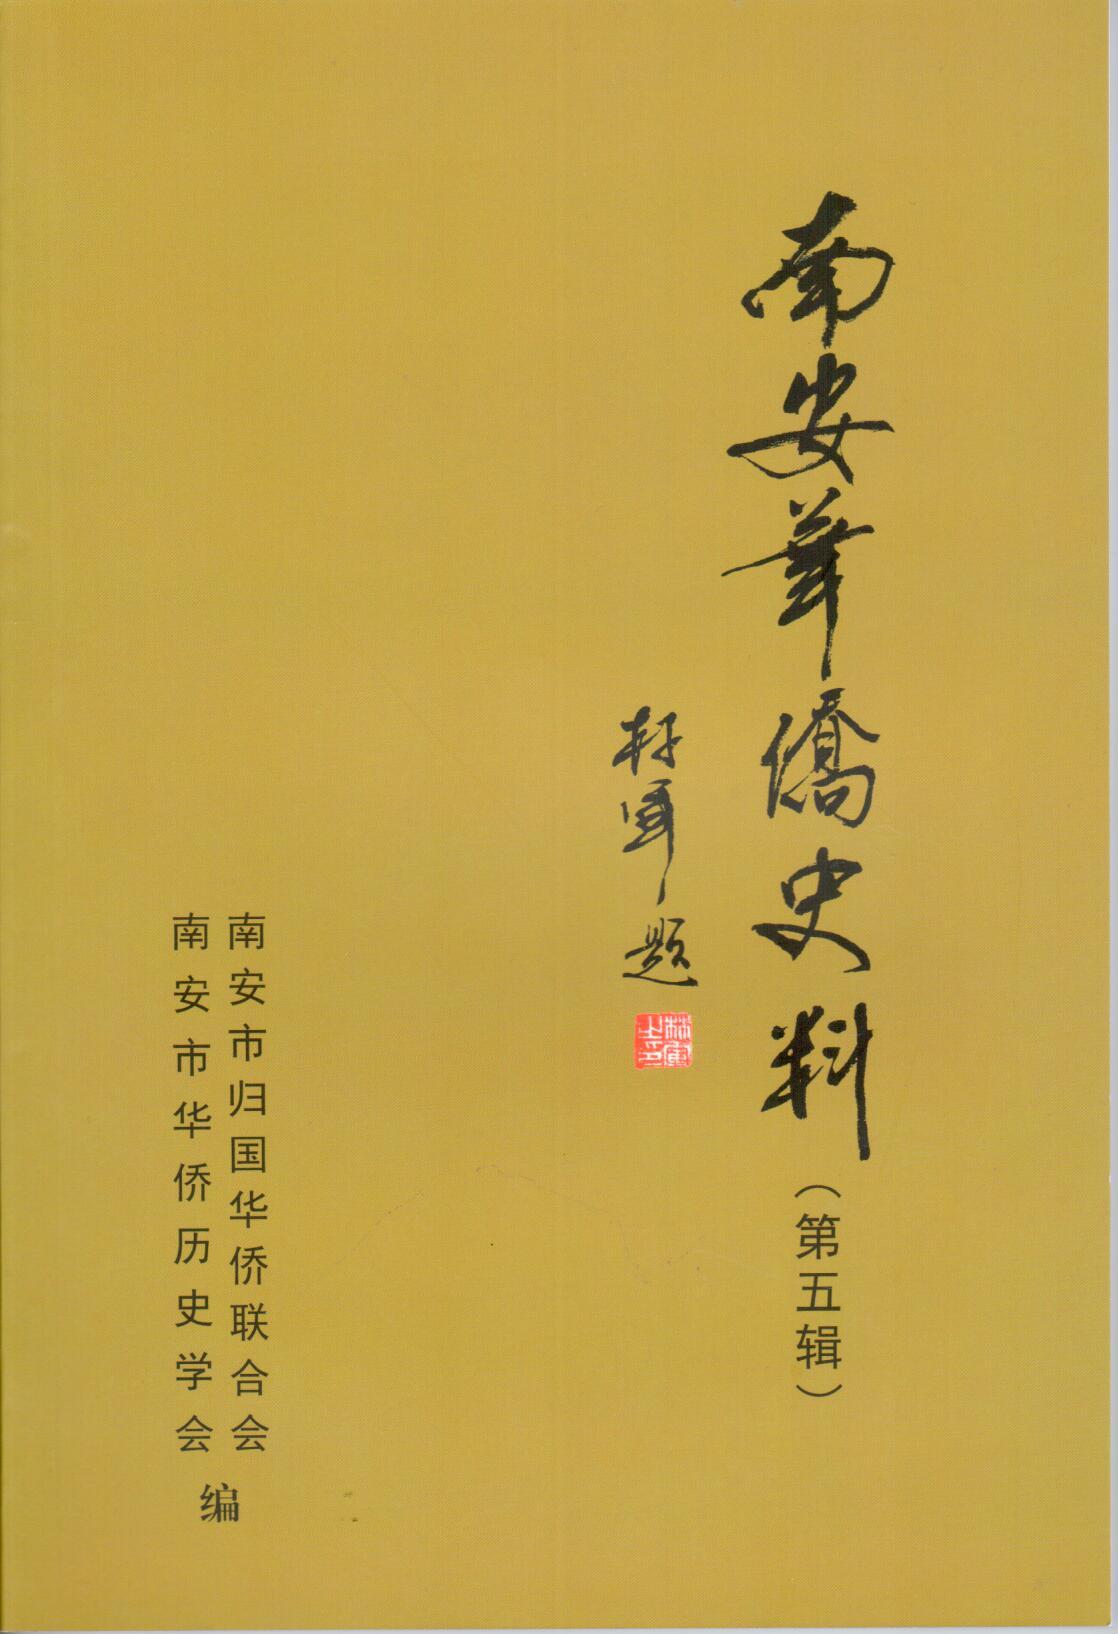 南安華僑史料
（第五辑）
林軍题
林軍之印
南安市归国华侨联合会
南安市华侨历史学会
编